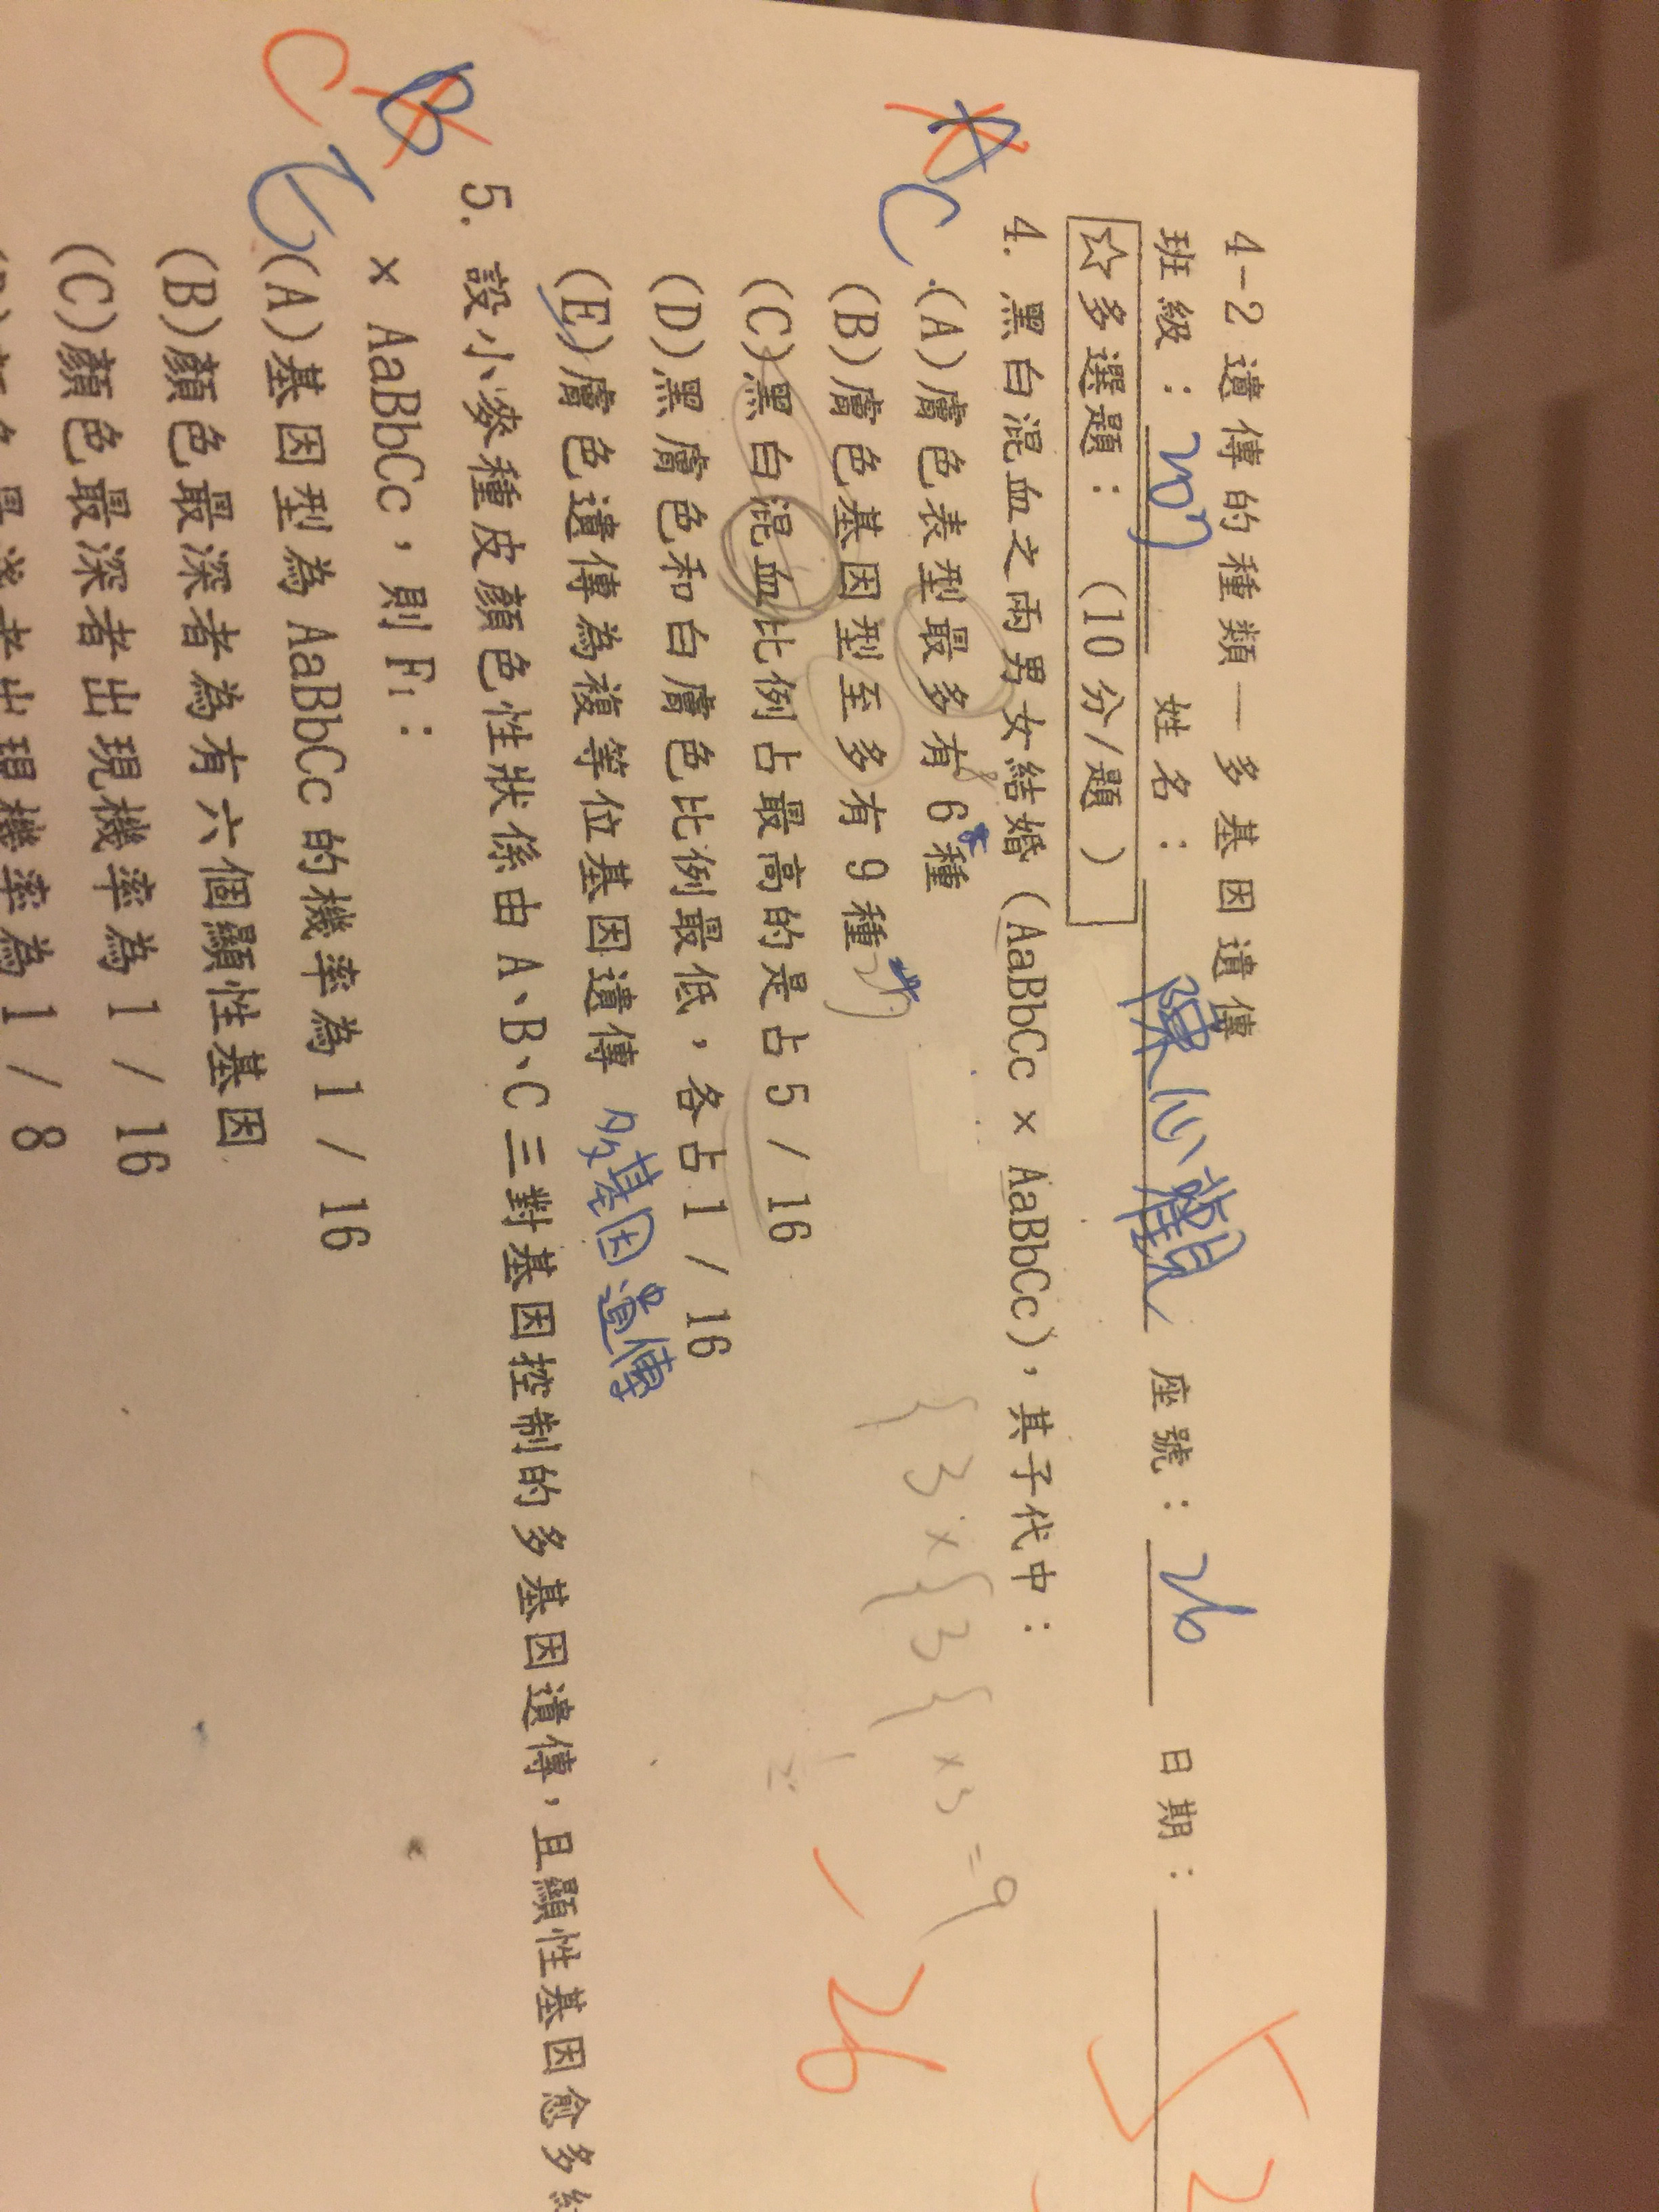 4-2 遺傳的種類—多基因遺傳
班級：207 姓名： 座號：26 日期：
☆多選題：（10分/題）
4. 黑白混血之兩男女結婚（AaBbCc × AaBbCc），其子代中：
AC
(A)膚色表型最多有 6 種
(B)膚色基因型至多有 9 種 27
(C)黑白混血比例占最高的是占 5 / 16
(D)黑膚色和白膚色比例最低，各占 1 / 16
(E)膚色遺傳為複等位基因遺傳 多基因遺傳
{3×{3{×3=9
-26
B
5. 設小麥種皮顏色性狀係由 A、B、C 三對基因控制的多基因遺傳，且顯性基因愈多
× AaBbCc，則 F₁：
C
(A)基因型為 AaBbCc 的機率為 1 / 16
(B)顏色最深者為有六個顯性基因
(C)顏色最深者出現機率為 1 / 16
出現機率為 1 / 8